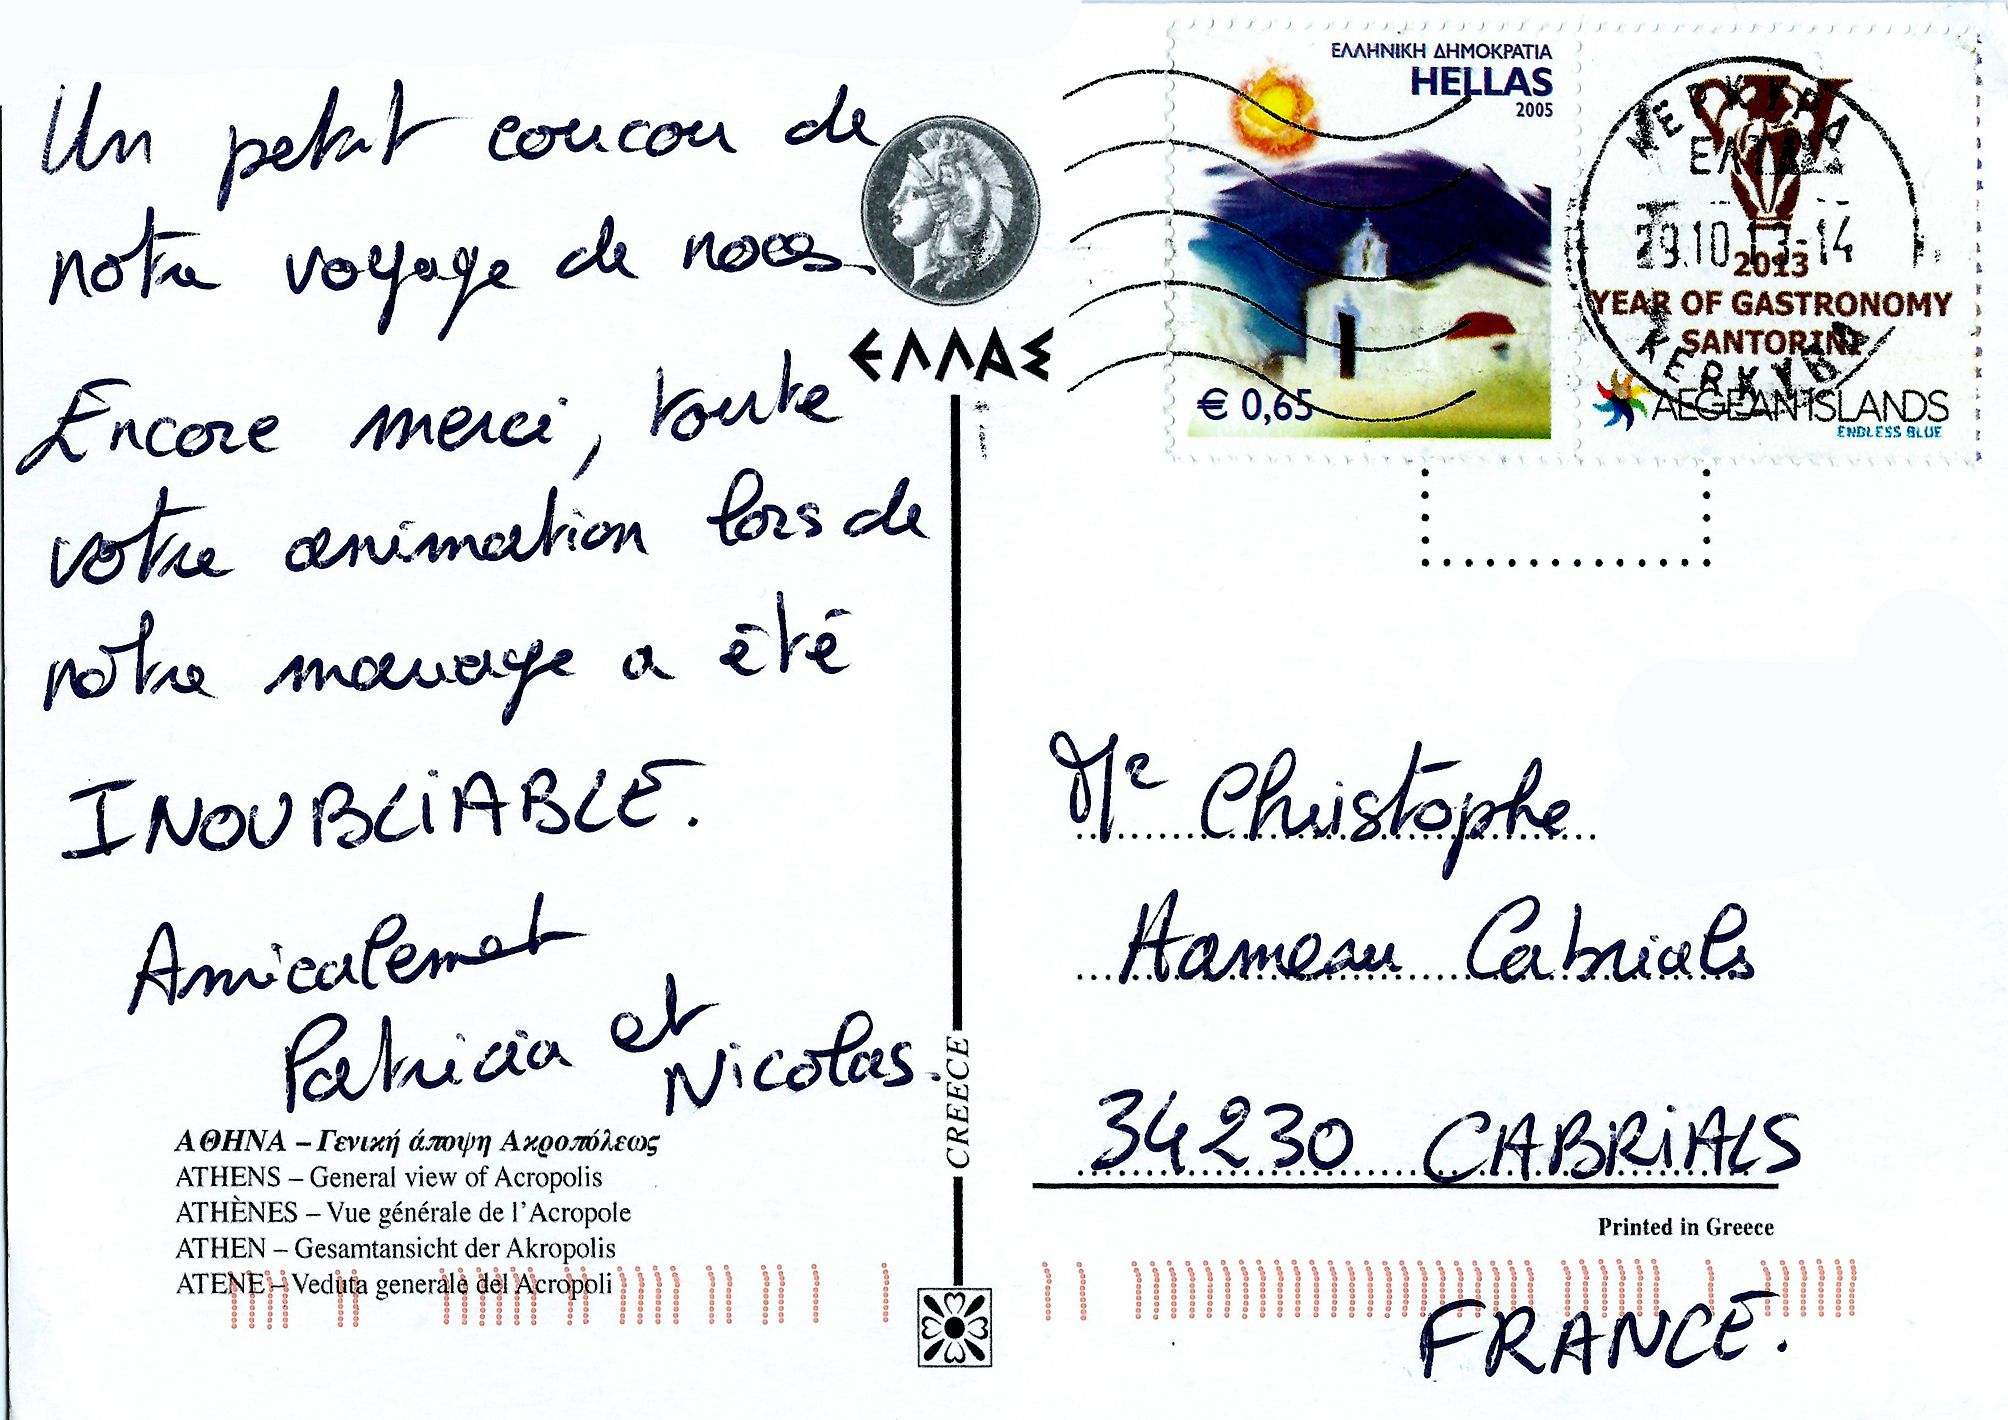 Un petit coucou de
notre voyage de noces.
Encore merci, toute
votre animation lors de
notre mariage a été
INOUBLIABLE.
Amicalement
Patricia et
Nicolas.
ΑΘΗΝΑ – Γενική άποψη Ακροπόλεως
ATHENS – General view of Acropolis
ATHÈNES – Vue générale de l'Acropole
ATHEN – Gesamtansicht der Akropolis
ATENE – Veduta generale del Acropoli
ΕΛΛΑΣ
CREECE
ΕΛΛΗΝΙΚΗ ΔΗΜΟΚΡΑΤΙΑ
HELLAS
2005
€ 0,65
ΚΕΡΚΥΡΑ
29.10.13-14
KERKYRA
2013
YEAR OF GASTRONOMY
SANTORINI
AEGEAN ISLANDS
ENDLESS BLUE
Mr Christophe
Hameau Cabrials
34230 CABRIALS
Printed in Greece
FRANCE.